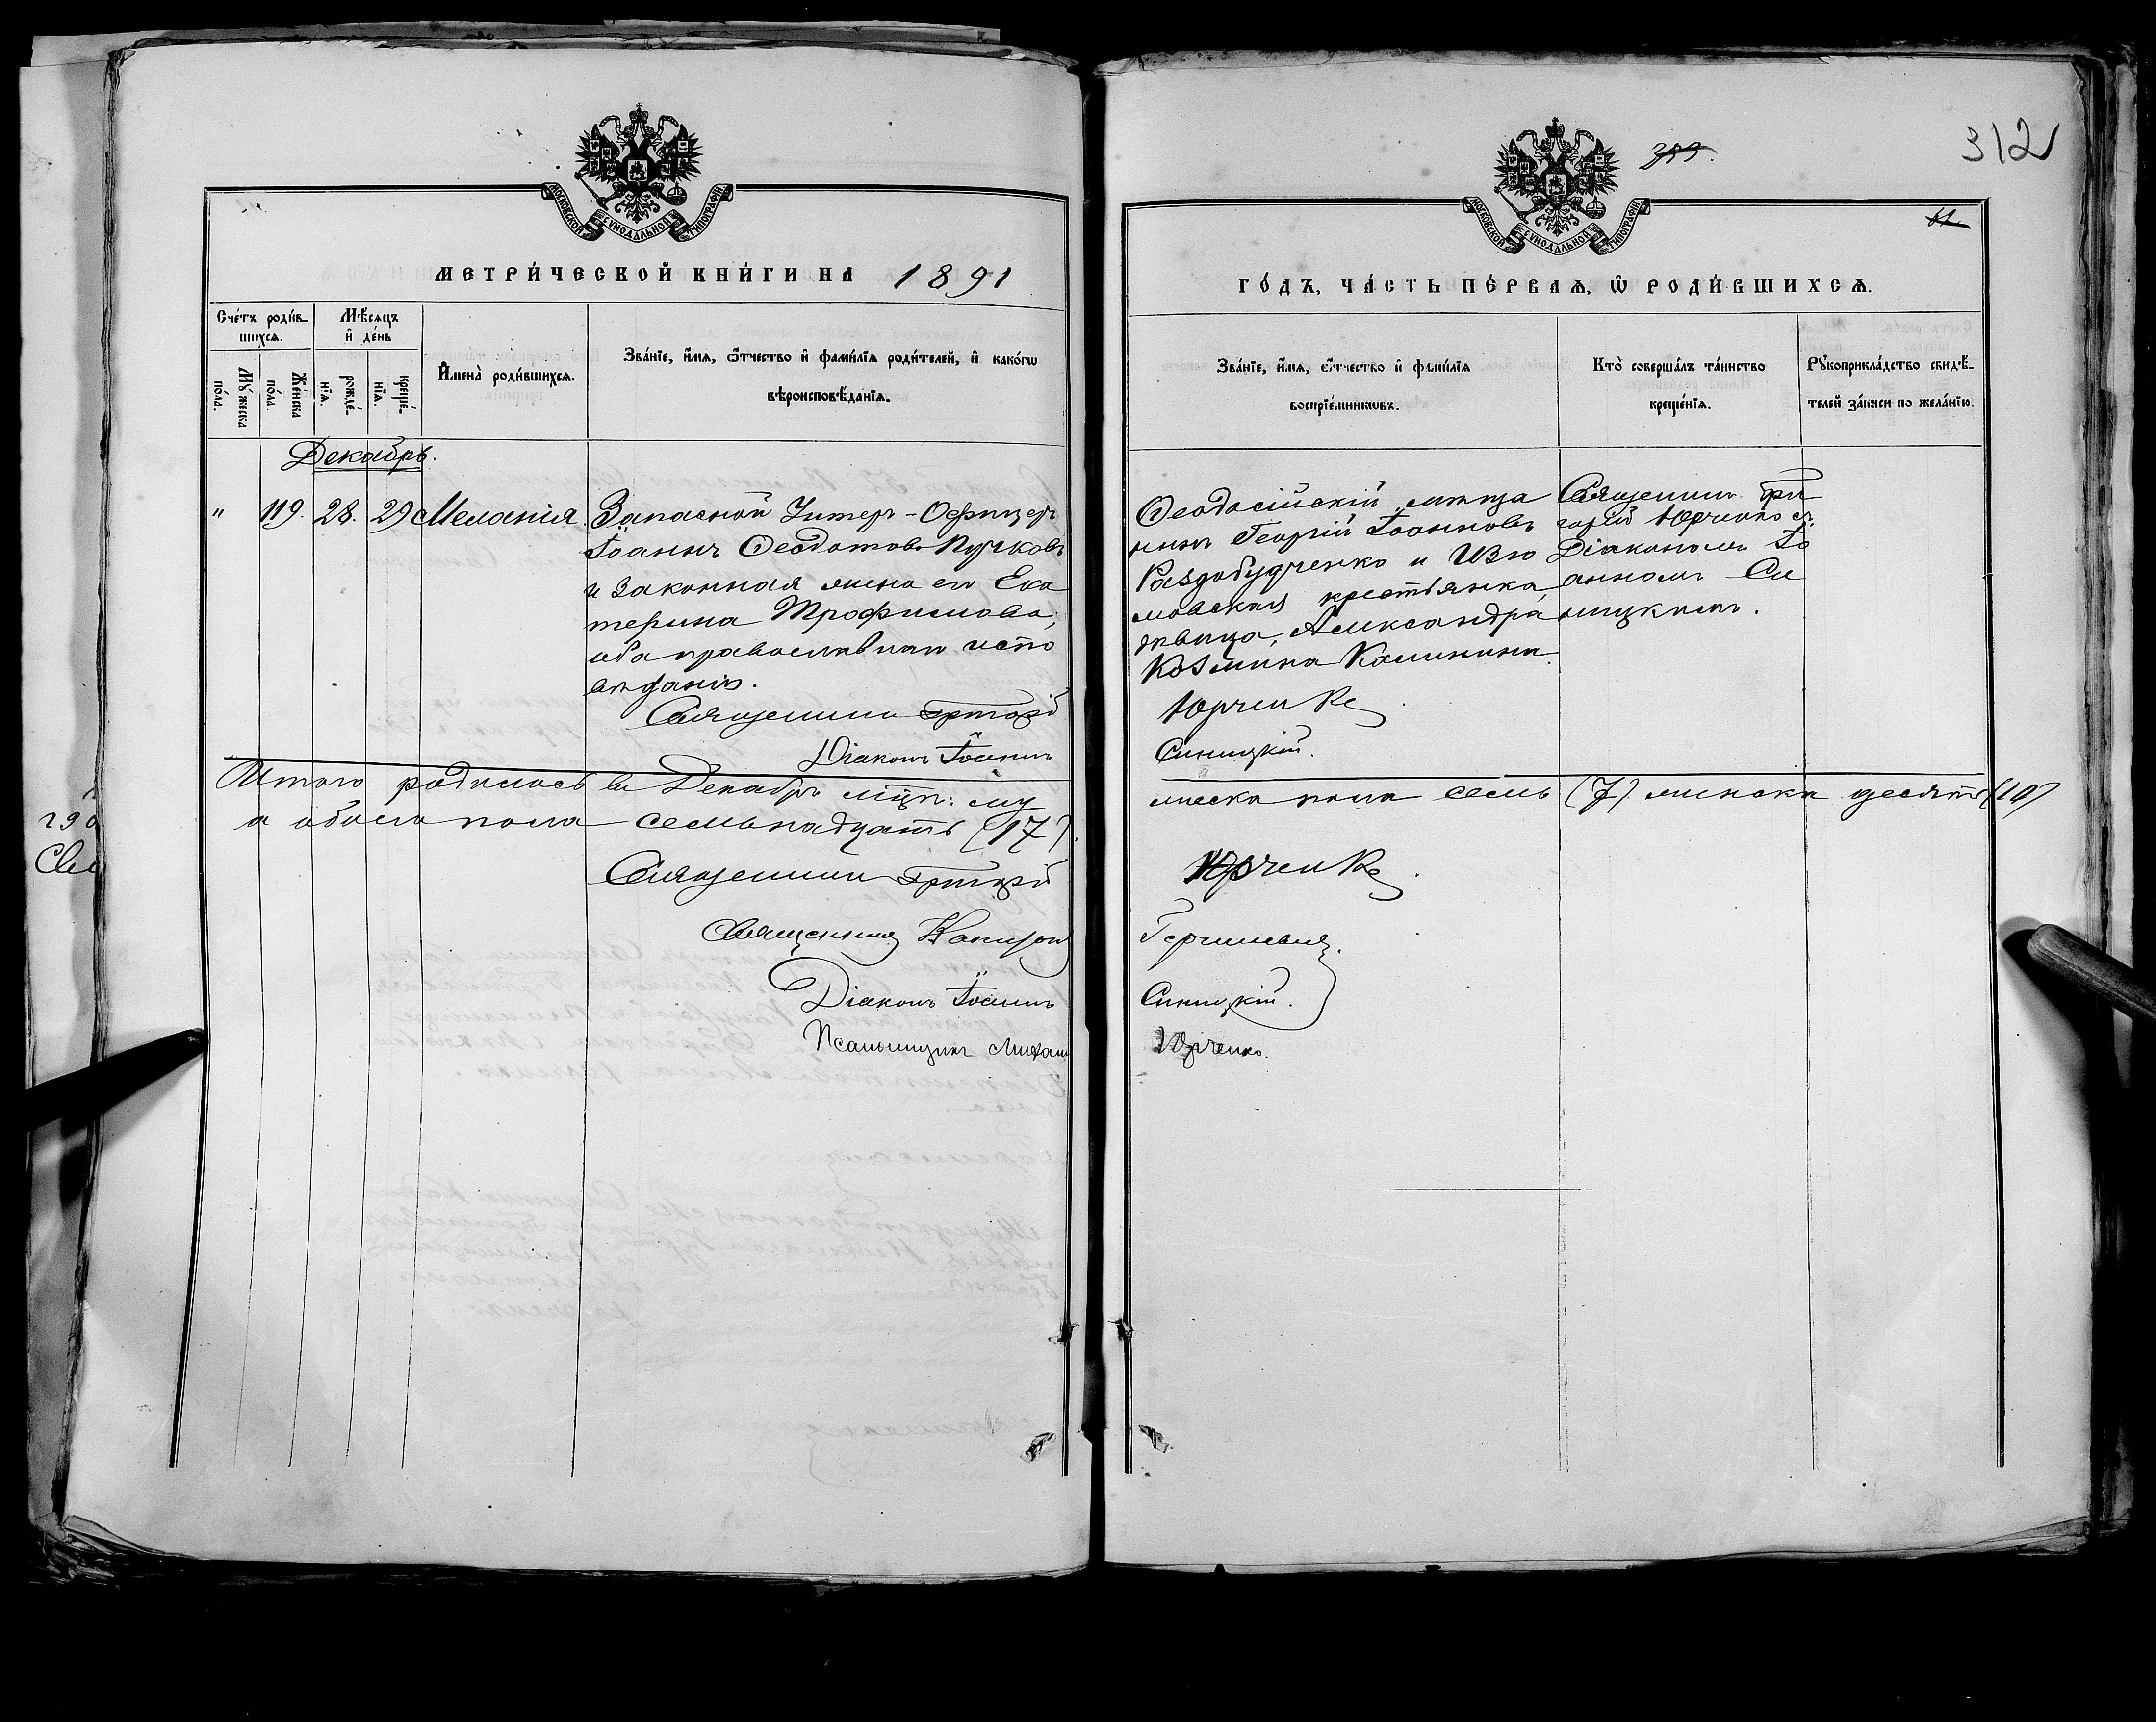 312
389.
61
МОСКОВСКОЙ СѴНОДАЛЬНОЙ ТИПОГРАФІИ
МЕТРИ́ЧЕСКОЙ КНИ́ГИ НА 1891
Сче́тъ роди́в-
шихсѧ.
Мꙋ́жеска
по́ла.
Же́нска
по́ла.
Мѣ́сѧцъ
и҆ де́нь
рожде́-
нїѧ.
креще́-
нїѧ.
И҆мена̀ роди́вшихсѧ.
Зва́нїе, и҆́мѧ, ѻ҆́тчество и҆ фами́лїѧ роди́телей, и҆ како́гѡ
вѣроисповѣ́данїѧ.
Декабрь.
" 119. 28. 29 Меланія.
Запасной Унтеръ-Офицеръ
Іоаннъ Ѳеодотовъ Пучковъ
и законная жена его Ека
терина Трофимова,
оба православнаго испо
вѣданія.
Священникъ Григорій
Діаконъ Іоаннъ
Итого родилось въ Декабрѣ мцѣ: му
а обоего пола семьнадцать (17).
Священникъ Григорій
Священникъ
Діаконъ Іоаннъ
Псаломщикъ Михаилъ
МОСКОВСКОЙ СѴНОДАЛЬНОЙ ТИПОГРАФІИ
ГО́ДЪ, ЧА́СТЬ ПЕ́РВАѦ, Ѡ҆ РОДИ́ВШИХСѦ.
Зва́нїе, и҆́мѧ, ѻ҆́тчество и҆ фами́лїѧ
воспрїе́мникѡвъ.
Кто̀ соверша́лъ та́инство
креще́нїѧ.
Рꙋкоприкла́дство свидѣ́-
телей за́писи по жела́нїю.
Ѳеодосійскій мѣща
нинъ Георгій Іоанновъ
Раздобудченко и Изю
мовская крестьянка,
дѣвица, Александра
Козмина Калинина.
Священникъ Гри
горій Юрченко съ
Діакономъ Іо
анномъ Си
ницкимъ.
Юрченко
Синицкій.
жеска пола семь (7) женска десять (10)
Юрченко
Синицкій.
Юрченко.